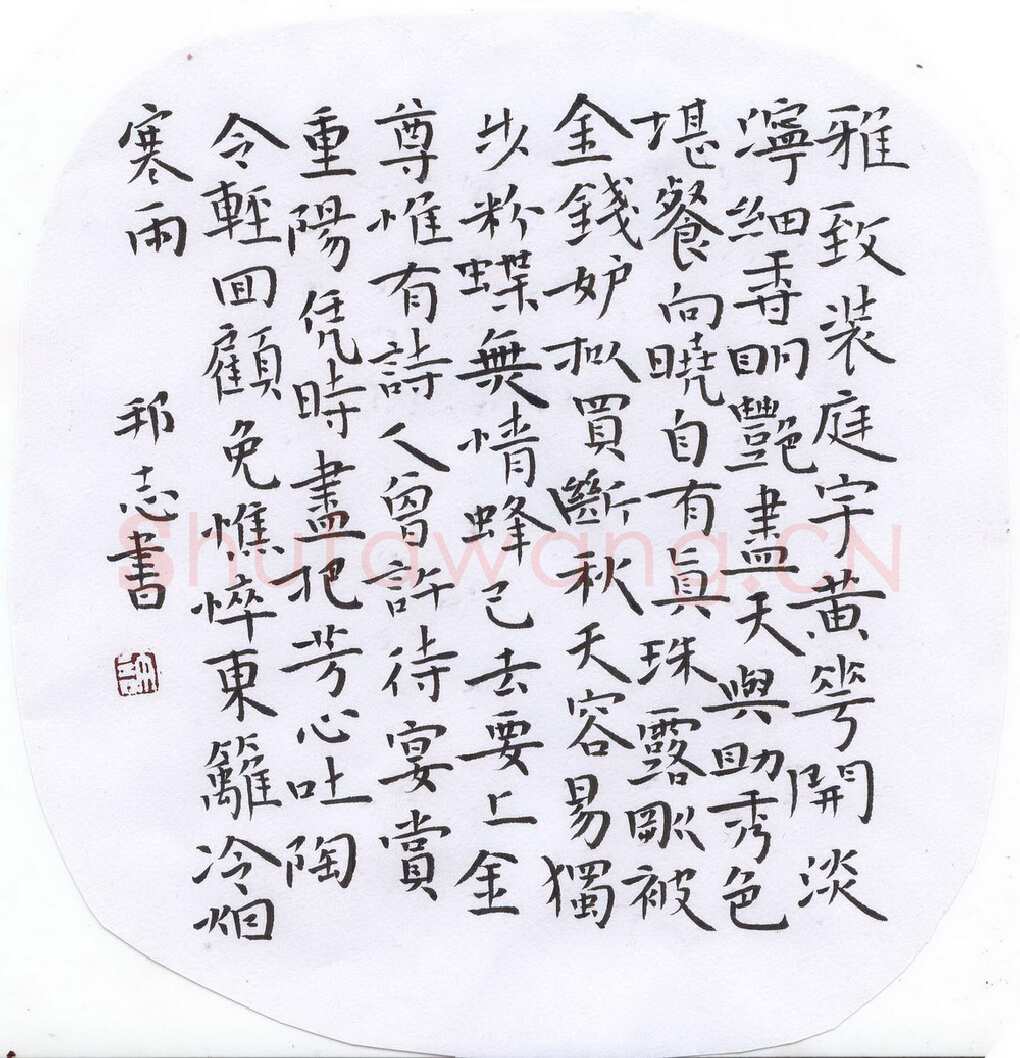 雅致装庭宇黃華開淡
濘細香明豔盡天與助秀色
堪餐向曉自有真珠露剛被
金錢妒拟買斷秋天容易獨
步粉蝶無情蜂已去要上金
尊惟有詩人曾許待宴賞
重陽凭時盡把芳心吐陶
令輕回顧免憔悴東籬冷烟
寒雨
邦志書
Shufawang.CN